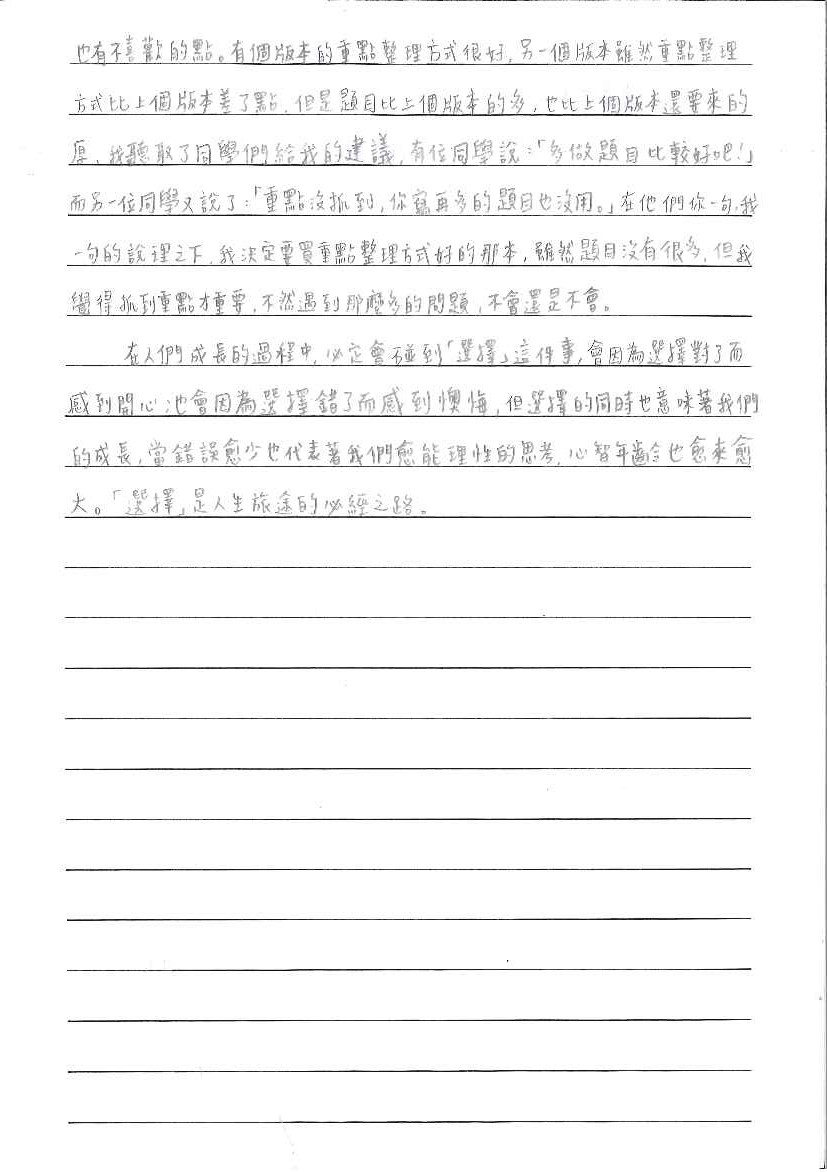 也有不喜歡的點。有個版本的重點整理方式很好,另一個版本雖然重點整理
方式比上個版本差了點,但是題目比上個版本的多,也比上個版本還要來的
厚,我聽取了同學們給我的建議,有位同學說:「多做題目比較好吧!」
而另一位同學又說了:「重點沒抓到,你寫再多的題目也沒用。」在他們你一句,我
一句的說理之下,我決定要買重點整理方式好的那本,雖然題目沒有很多,但我
覺得抓到重點才重要,不然遇到那麼多的問題,不會還是不會。
在人們成長的過程中,必定會碰到「選擇」這件事,會因為選擇對了而
感到開心;也會因為選擇錯了而感到懊悔,但選擇的同時也意味著我們
的成長,當錯誤愈少也代表著我們愈能理性的思考,心智年齡也愈來愈
大。「選擇」是人生旅途的必經之路。